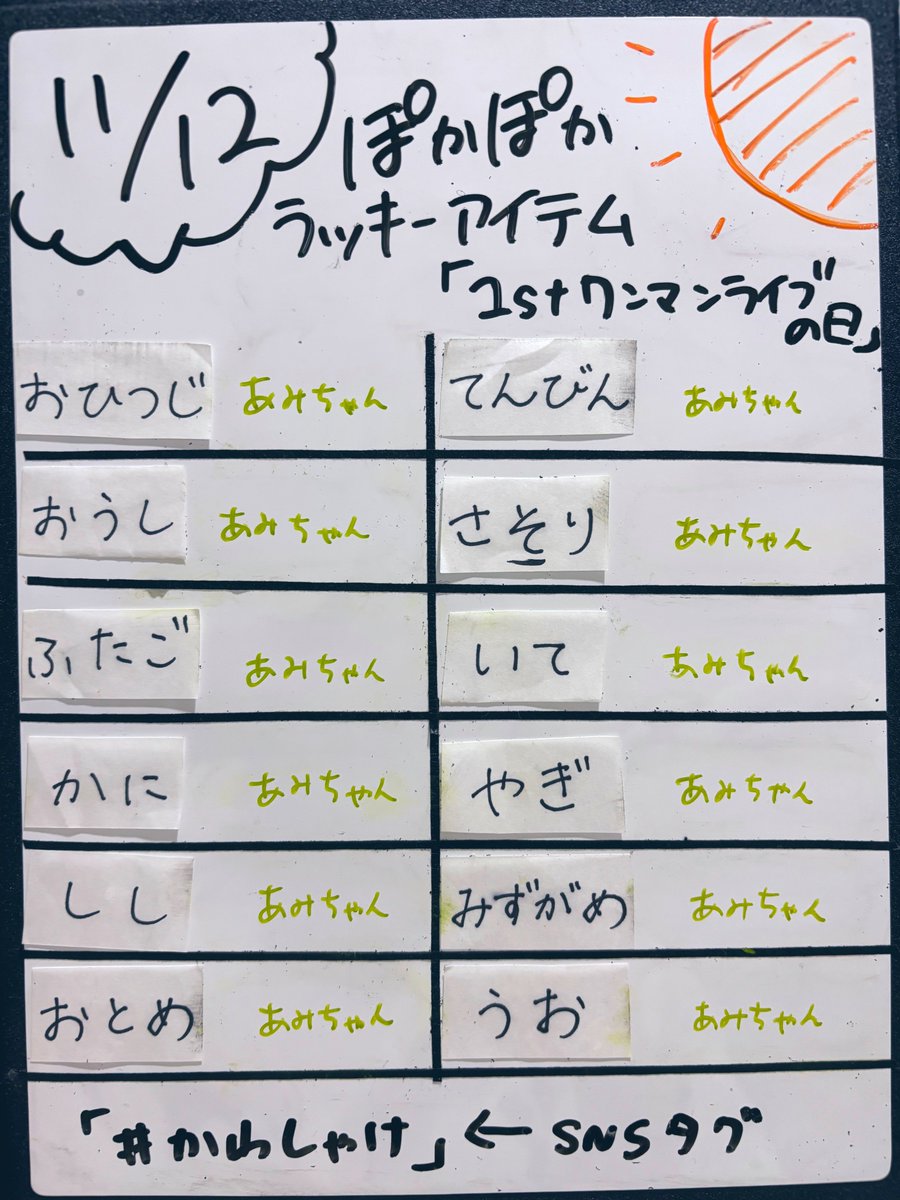 11/12
ぽかぽか
ラッキーアイテム
「1stワンマンライブ
の日」
おひつじ あみちゃん てんびん あみちゃん
おうし あみちゃん さそり あみちゃん
ふたご あみちゃん いて あみちゃん
かに あみちゃん やぎ あみちゃん
しし あみちゃん みずがめ あみちゃん
おとめ あみちゃん うお あみちゃん
「#かわしゃけ」←SNSタグ